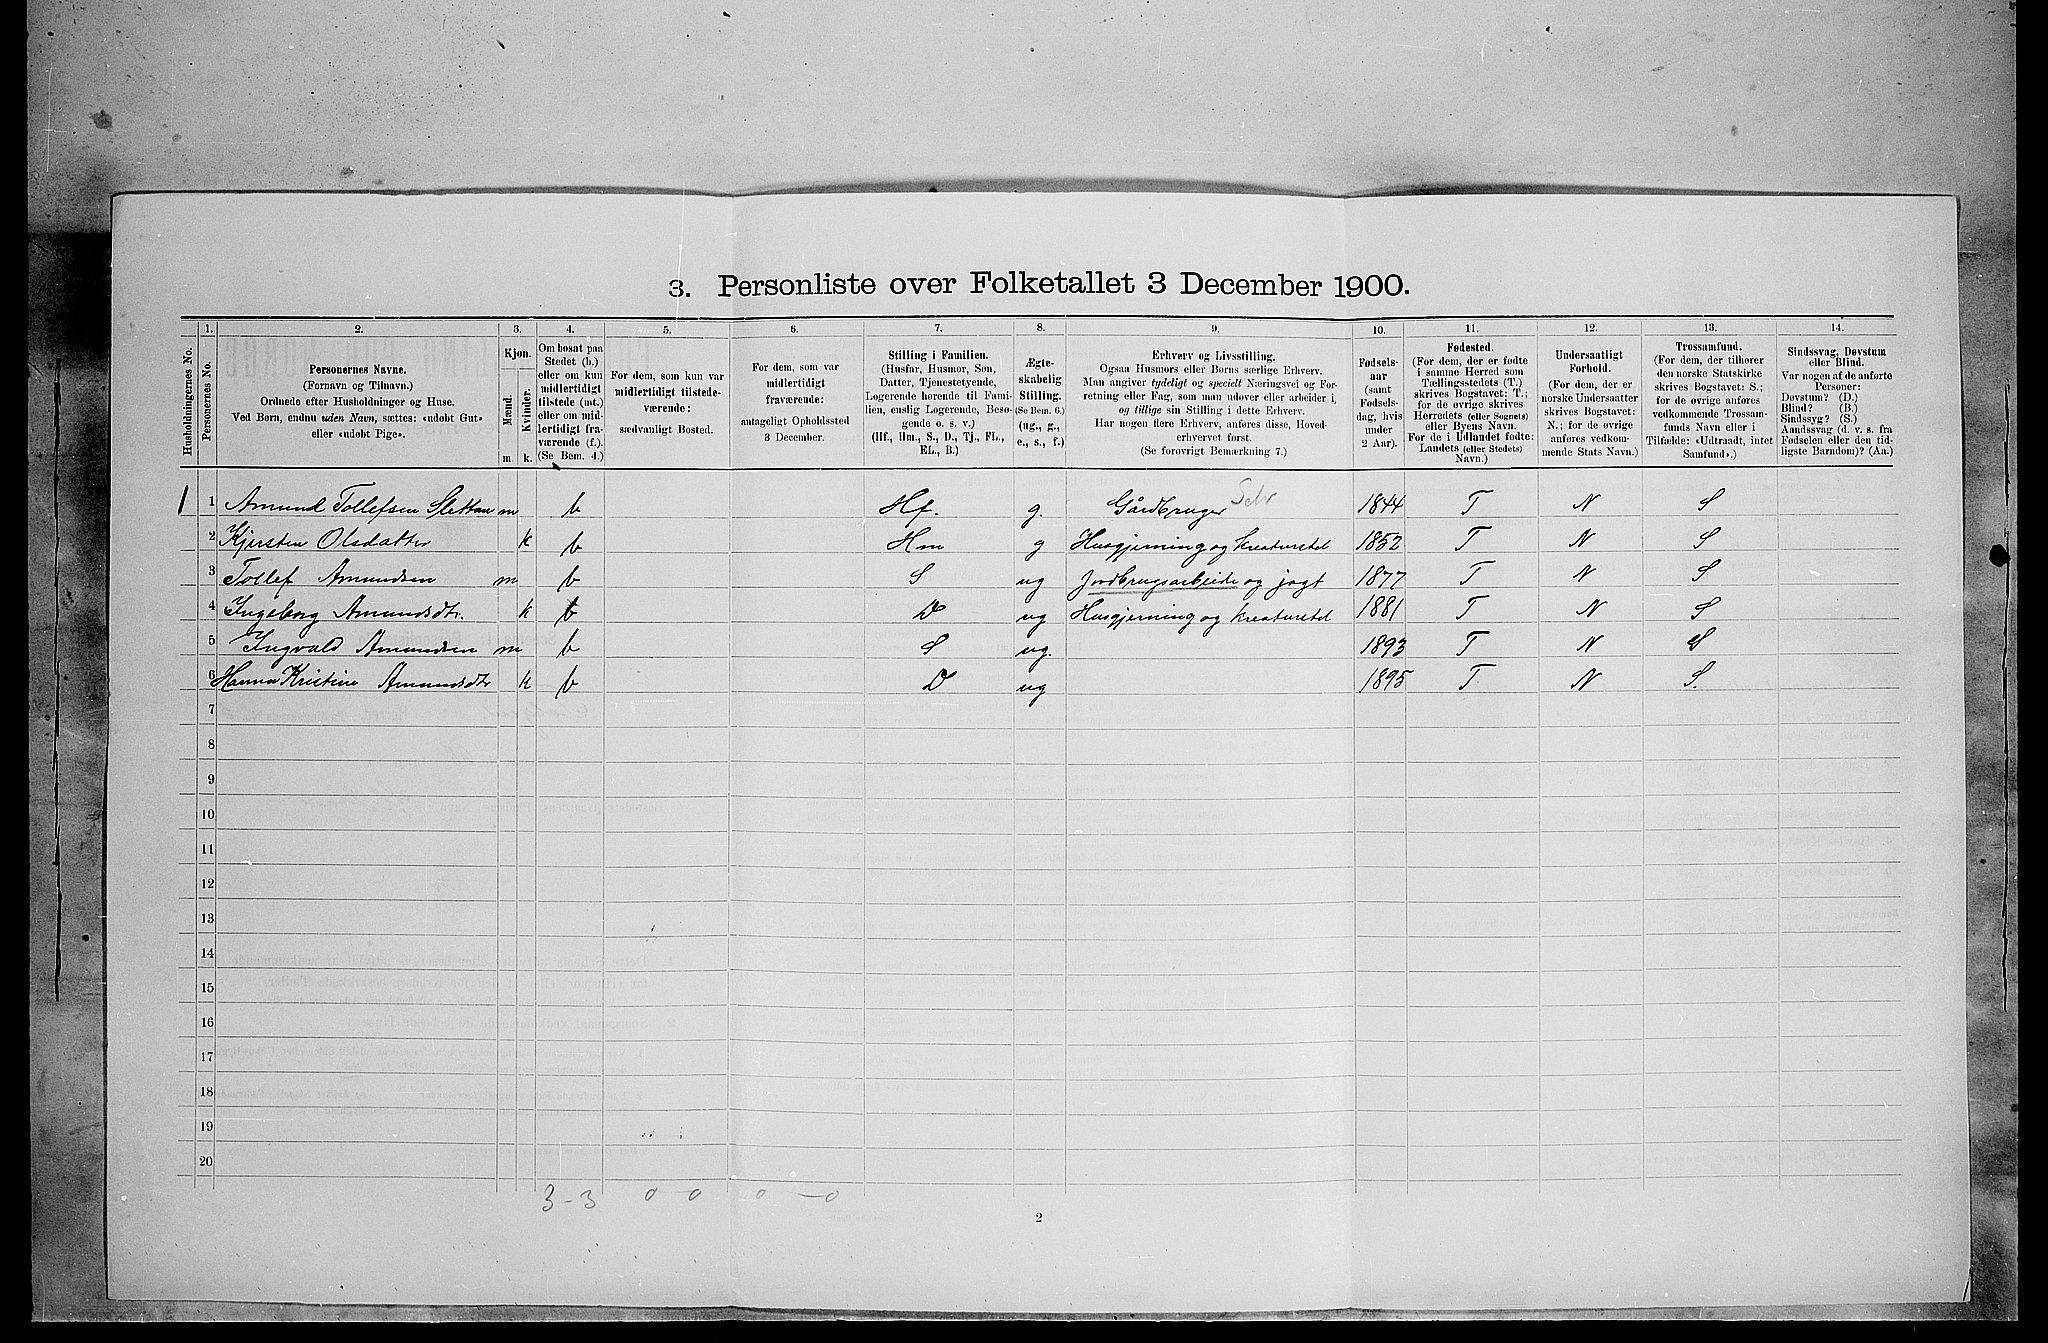 3. Personliste over Folketallet 3 December 1900.
Husholdningernes No.
1.
Personernes No.
2.
Personernes Navne.
(Fornavn og Tilnavn.)
Ordnede efter Husholdninger og Huse.
Ved Børn, endnu uden Navn, sættes: «udøbt Gut»
eller «udøbt Pige».
3.
Kjøn.
Mænd.
Kvinder.
m. k.
4.
Om bosat paa
Stedet (b.)
eller om kun
midlertidigt
tilstede (mt.)
eller om mid-
lertidigt fra-
værende (f.).
(Se Bem. 4.)
5.
For dem, som kun var
midlertidigt tilstede-
værende:
sædvanligt Bosted.
6.
For dem, som var
midlertidigt
fraværende:
antageligt Opholdssted
3 December.
7.
Stilling i Familien.
(Husfar, Husmor, Søn,
Datter, Tjenestetyende,
Logerende hørende til Fami-
lien, enslig Logerende, Besø-
gende o. s. v.)
(Hf., Hm., S., D., Tj., FL.,
EL., B.)
8.
Ægte-
skabelig
Stilling.
(Se Bem. 6.)
(ug., g.,
e., s., f.)
9.
Erhverv og Livsstilling.
Ogsaa Husmors eller Børns særlige Erhverv.
Man angiver tydeligt og specielt Næringsvei og For-
retning eller Fag, som man udøver eller arbeider i,
og tillige sin Stilling i dette Erhverv.
Har nogen flere Erhverv, anføres disse, Hoved-
erhvervet først.
(Se forøvrigt Bemærkning 7.)
10.
Fødsels-
aar
(samt
Fødsels-
dag, hvis
under
2 Aar).
11.
Fødested.
(For dem, der er fødte
i samme Herred som
Tællingsstedets (T.)
skrives Bogstavet: T.;
for de øvrige skrives
Herredets (eller Sognets)
eller Byens Navn.
For de i Udlandet fødte:
Landets (eller Stedets)
Navn.)
12.
Undersaatligt
Forhold.
(For dem, der er
norske Undersaatter
skrives Bogstavet:
N.; for de øvrige
anføres vedkom-
mende Stats Navn.)
13.
Trossamfund.
(For dem, der tilhører
den norske Statskirke
skrives Bogstavet: S.;
for de øvrige anføres
vedkommende Trossam-
funds Navn eller i
Tilfælde: «Udtraadt, intet
Samfund».)
14.
Sindssvag, Døvstum
eller Blind.
Var nogen af de anførte
Personer:
Døvstum? (D.)
Blind? (B.)
Sindssyg? (S.)
Aandssvag (d. v. s. fra
Fødselen eller den tid-
ligste Barndom)? (Aa.)
1 1 Amund Tollefsen Slettan m b Hf. g. Gårdbruger Selv 1844 T N S
2 Kjersten Olsdatter k b Hm g Husgjerning og kreaturstel 1852 T N S
3 Tollef Amundsen m b S ug Jordbrugsarbeide og jagt 1877 T N S
4 Ingeborg Amundsdtr. k b D ug Husgjerning og kreaturstel 1881 T N S
5 Ingvald Amundsen m b S ug. 1893 T N S
6 Hanna Kristine Amundsdtr k b D ug 1895 T N S.
7
8
9
10
11
12
13
14
15
16
17
18
19
20
3-3 0 0 0 - 0
2